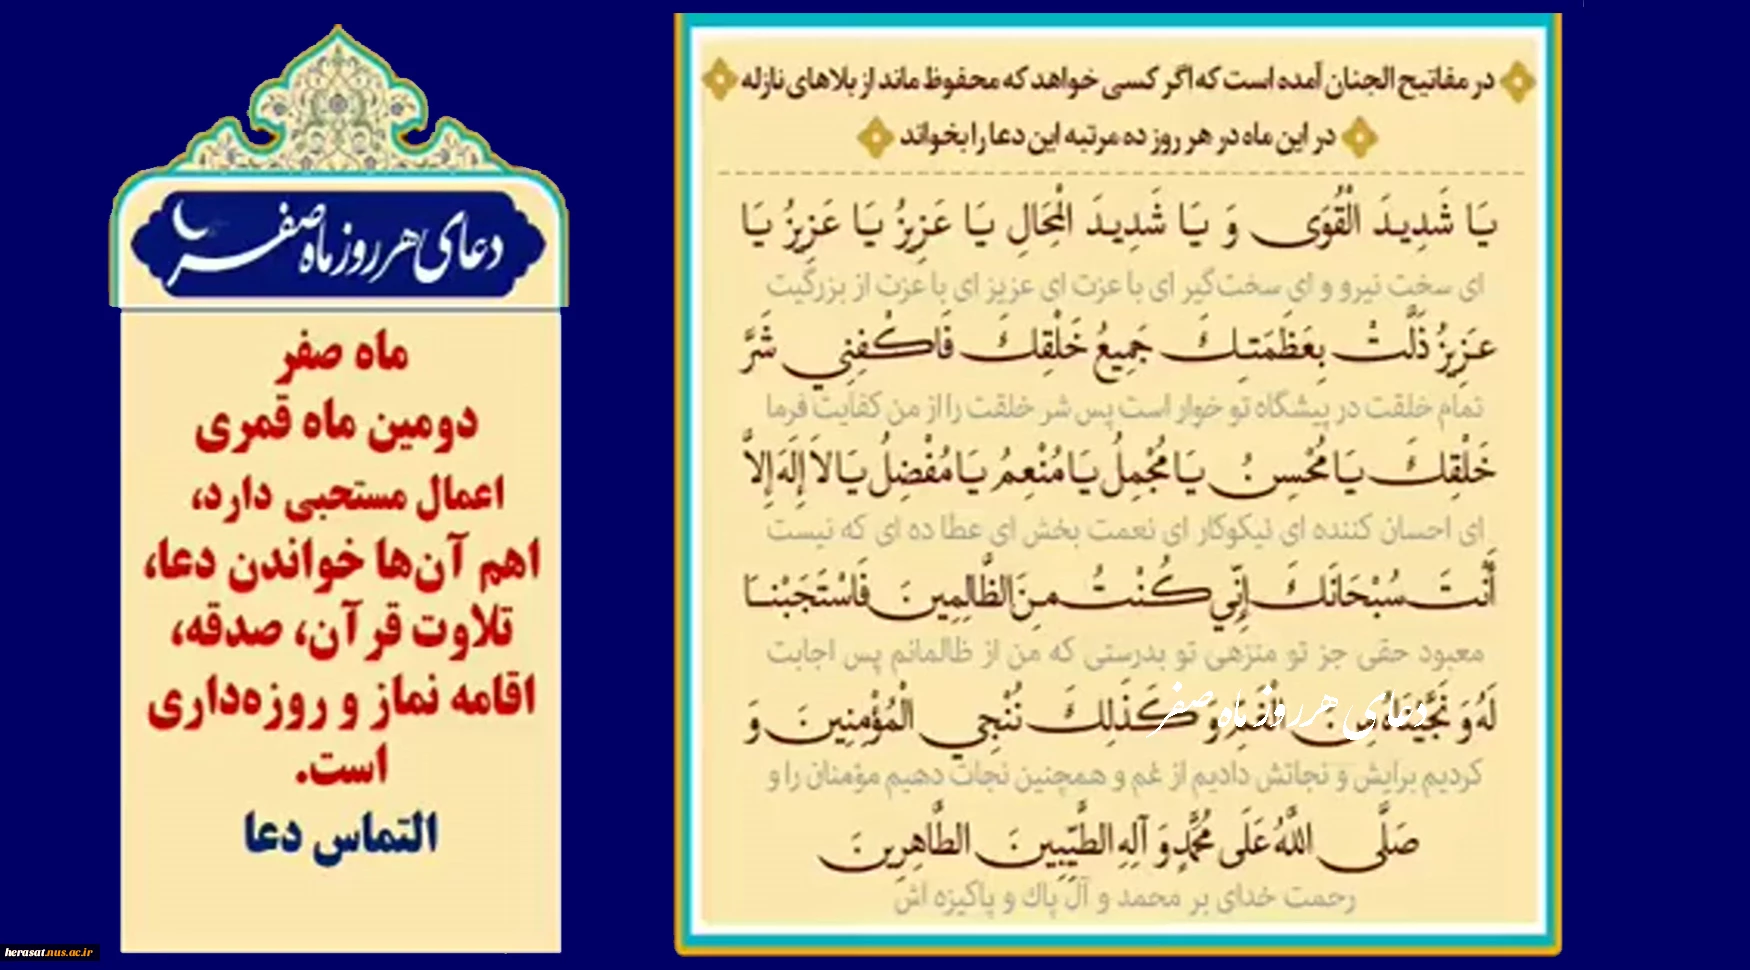 در مفاتیح الجنان آمده است که اگر کسی خواهد که محفوظ ماند از بلاهای نازله
در این ماه در هر روز ده مرتبه این دعا را بخواند
یَا شَدِیدَ الْقُوَى وَ یَا شَدِیدَ الْمِحَالِ یَا عَزِیزُ یَا عَزِیزُ یَا
ای سخت نیرو و ای سخت‌گیر ای با عزت ای عزیز ای با عزت از بزرگیت
عَزِیزُ ذَلَّتْ بِعَظَمَتِكَ جَمِیعُ خَلْقِكَ فَاكْفِنِي شَرَّ
تمام خلقت در پیشگاه تو خوار است پس شر خلقت را از من کفایت فرما
خَلْقِكَ یَا مُحْسِنُ یَا مُجْمِلُ یَا مُنْعِمُ یَا مُفْضِلُ یَا لاَ إِلَهَ إِلاَّ
ای احسان کننده ای نیکوکار ای نعمت بخش ای عطا ده ای که نیست
أَنْتَ سُبْحَانَكَ إِنِّي كُنْتُ مِنَ الظَّالِمِینَ فَاسْتَجَبْنَا
معبود حقی جز تو منزهی تو بدرستی که من از ظالمانم پس اجابت
لَهُ وَ نَجَّیْنَاهُ مِنَ الْغَمِّ وَ كَذَلِكَ نُنْجِي الْمُؤْمِنِینَ وَ
دعای هر روز ماه صفر
کردیم برایش و نجاتش دادیم از غم و همچنین نجات دهیم مؤمنان را و
صَلَّى اللَّهُ عَلَى مُحَمَّدٍ وَ آلِهِ الطَّیِّبِینَ الطَّاهِرِینَ
رحمت خدای بر محمد و آل پاك و پاکیزه اش
دعای هر روز ماه صفر
ماه صفر
دومین ماه قمری
اعمال مستحبی دارد،
اهم آن‌ها خواندن دعا،
تلاوت قرآن، صدقه،
اقامه نماز و روزه‌داری
است.
التماس دعا
herasat.nus.ac.ir